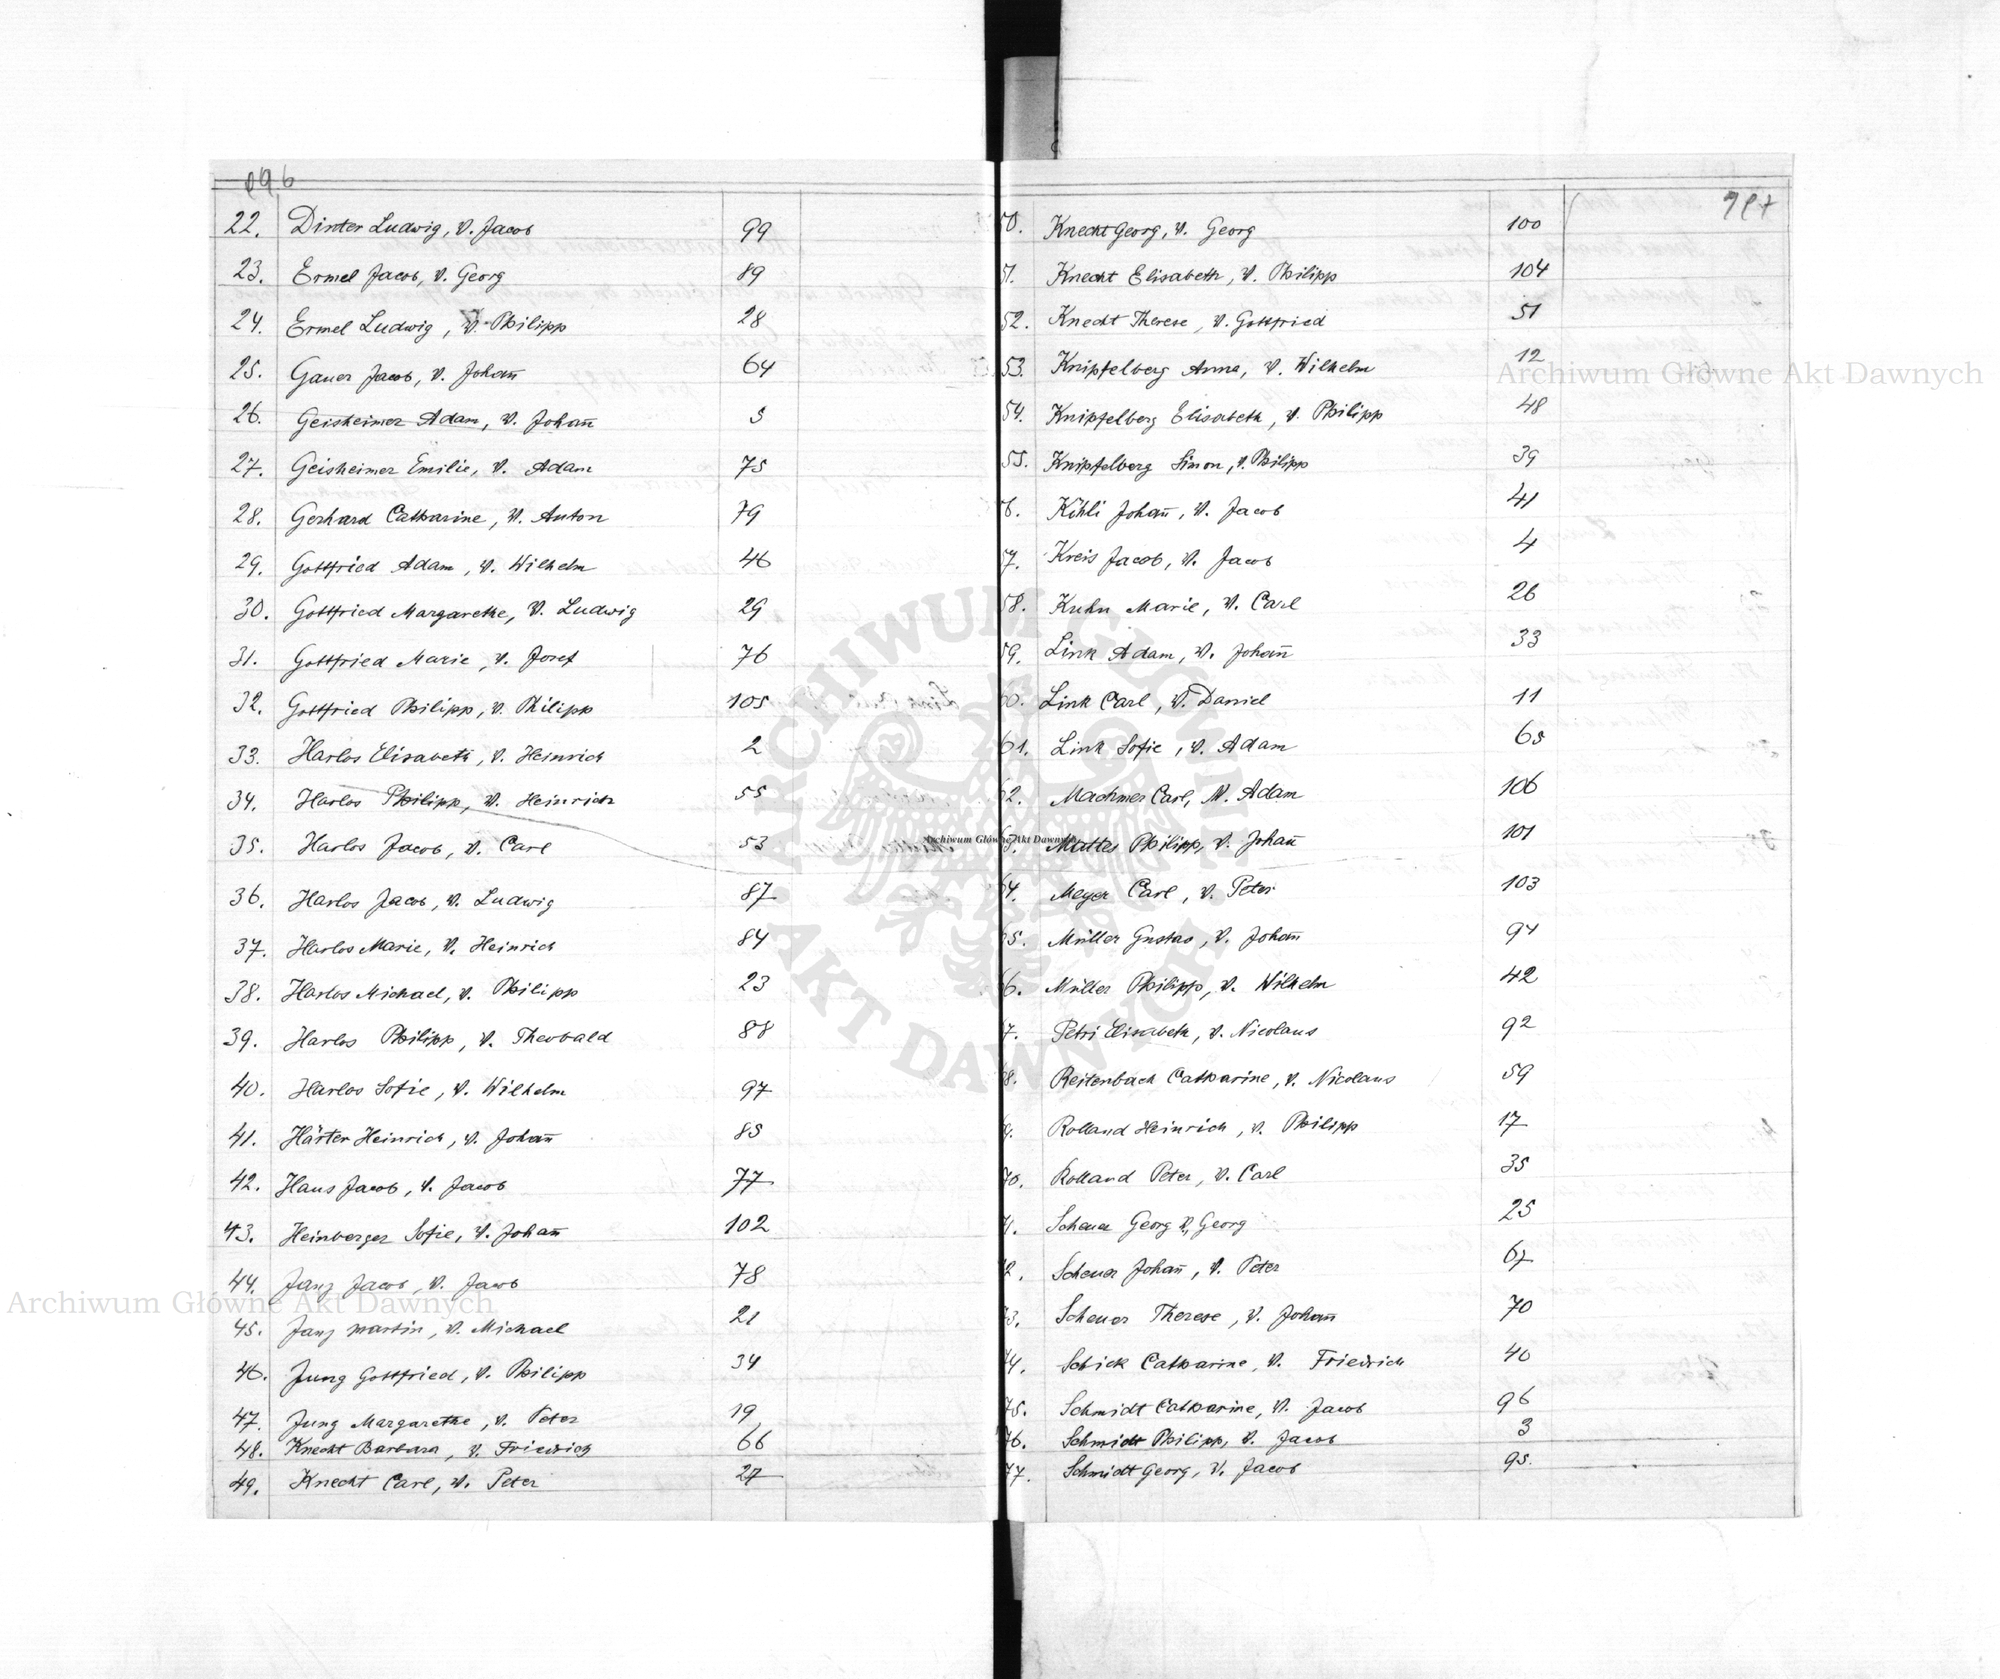 096
22. Dinter Ludwig, v. Jacob 99
23. Ermel Jacob, v. Georg 89
24. Ermel Ludwig, v. Philipp 28
25. Gauer Jacob, v. Johañ 64
26. Geisheimer Adam, v. Johañ 5
27. Geisheimer Emilie, v. Adam 75
28. Gerhard Catharine, v. Anton 79
29. Gottfried Adam, v. Wilhelm 46
30. Gottfried Margarethe, v. Ludwig 29
31. Gottfried Marie, v. Josef 76
32. Gottfried Philipp, v. Philipp 105
33. Harlos Elisabeth, v. Heinrich 2
34. Harlos Philipp, v. Heinrich 55
35. Harlos Jacob, v. Carl 53
36. Harlos Jacob, v. Ludwig 87
37. Harlos Marie, v. Heinrich 84
38. Harlos Michael, v. Philipp 23
39. Harlos Philipp, v. Theobald 88
40. Harlos Sofie, v. Wilhelm 97
41. Härter Heinrich, v. Johañ 85
42. Haus Jacob, v. Jacob 77
43. Heinberger Sofie, v. Johañ 102
44. Janz Jacob, v. Jacob 78
45. Janz Martin, v. Michael 21
46. Jung Gottfried, v. Philipp 34
47. Jung Margarethe, v. Peter 19
48. Knecht Barbara, v. Friedrich 66
49. Knecht Carl, v. Peter 27
0. Knecht Georg, v. Georg 100
51. Knecht Elisabeth, v. Philipp 104
52. Knecht Therese, v. Gottfried 51
53. Knipfelberg Anna, v. Wilhelm 12
54. Knipfelberg Elisabeth, v. Philipp 48
55. Knipfelberg Simon, v. Philipp 39
6. Kühli Johañ, v. Jacob 41
7. Kreis Jacob, v. Jacob 4
58. Kuhn Marie, v. Carl 26
59. Link Adam, v. Johañ 33
60. Link Carl, v. Daniel 11
61. Link Sofie, v. Adam 65
62. Machmer Carl, v. Adam 106
63. Mattes Philipp, v. Johañ 101
64. Meyer Carl, v. Peter 103
65. Müller Gustav, v. Johañ 94
6. Müller Philipp, v. Wilhelm 42
7. Petri Elisabeth, v. Nicolaus 92
8. Reitenbach Catharine, v. Nicolaus 59
9. Rolland Heinrich, v. Philipp 17
70. Rolland Peter, v. Carl 35
71. Scheuer Georg v. Georg 25
2. Scheuer Johañ, v. Peter 67
73. Scheuer Therese, v. Johañ 70
74. Schick Catharine, v. Friedrich 40
75. Schmidt Catharine, v. Jacob 96
76. Schmidt Philipp, v. Jacob 3
77. Schmidt Georg, v. Jacob 95.
Archiwum Główne Akt Dawnych
Archiwum Główne Akt Dawnych
Archiwum Główne Akt Dawnych
ARCHIWUM GŁÓWNE AKT DAWNYCH